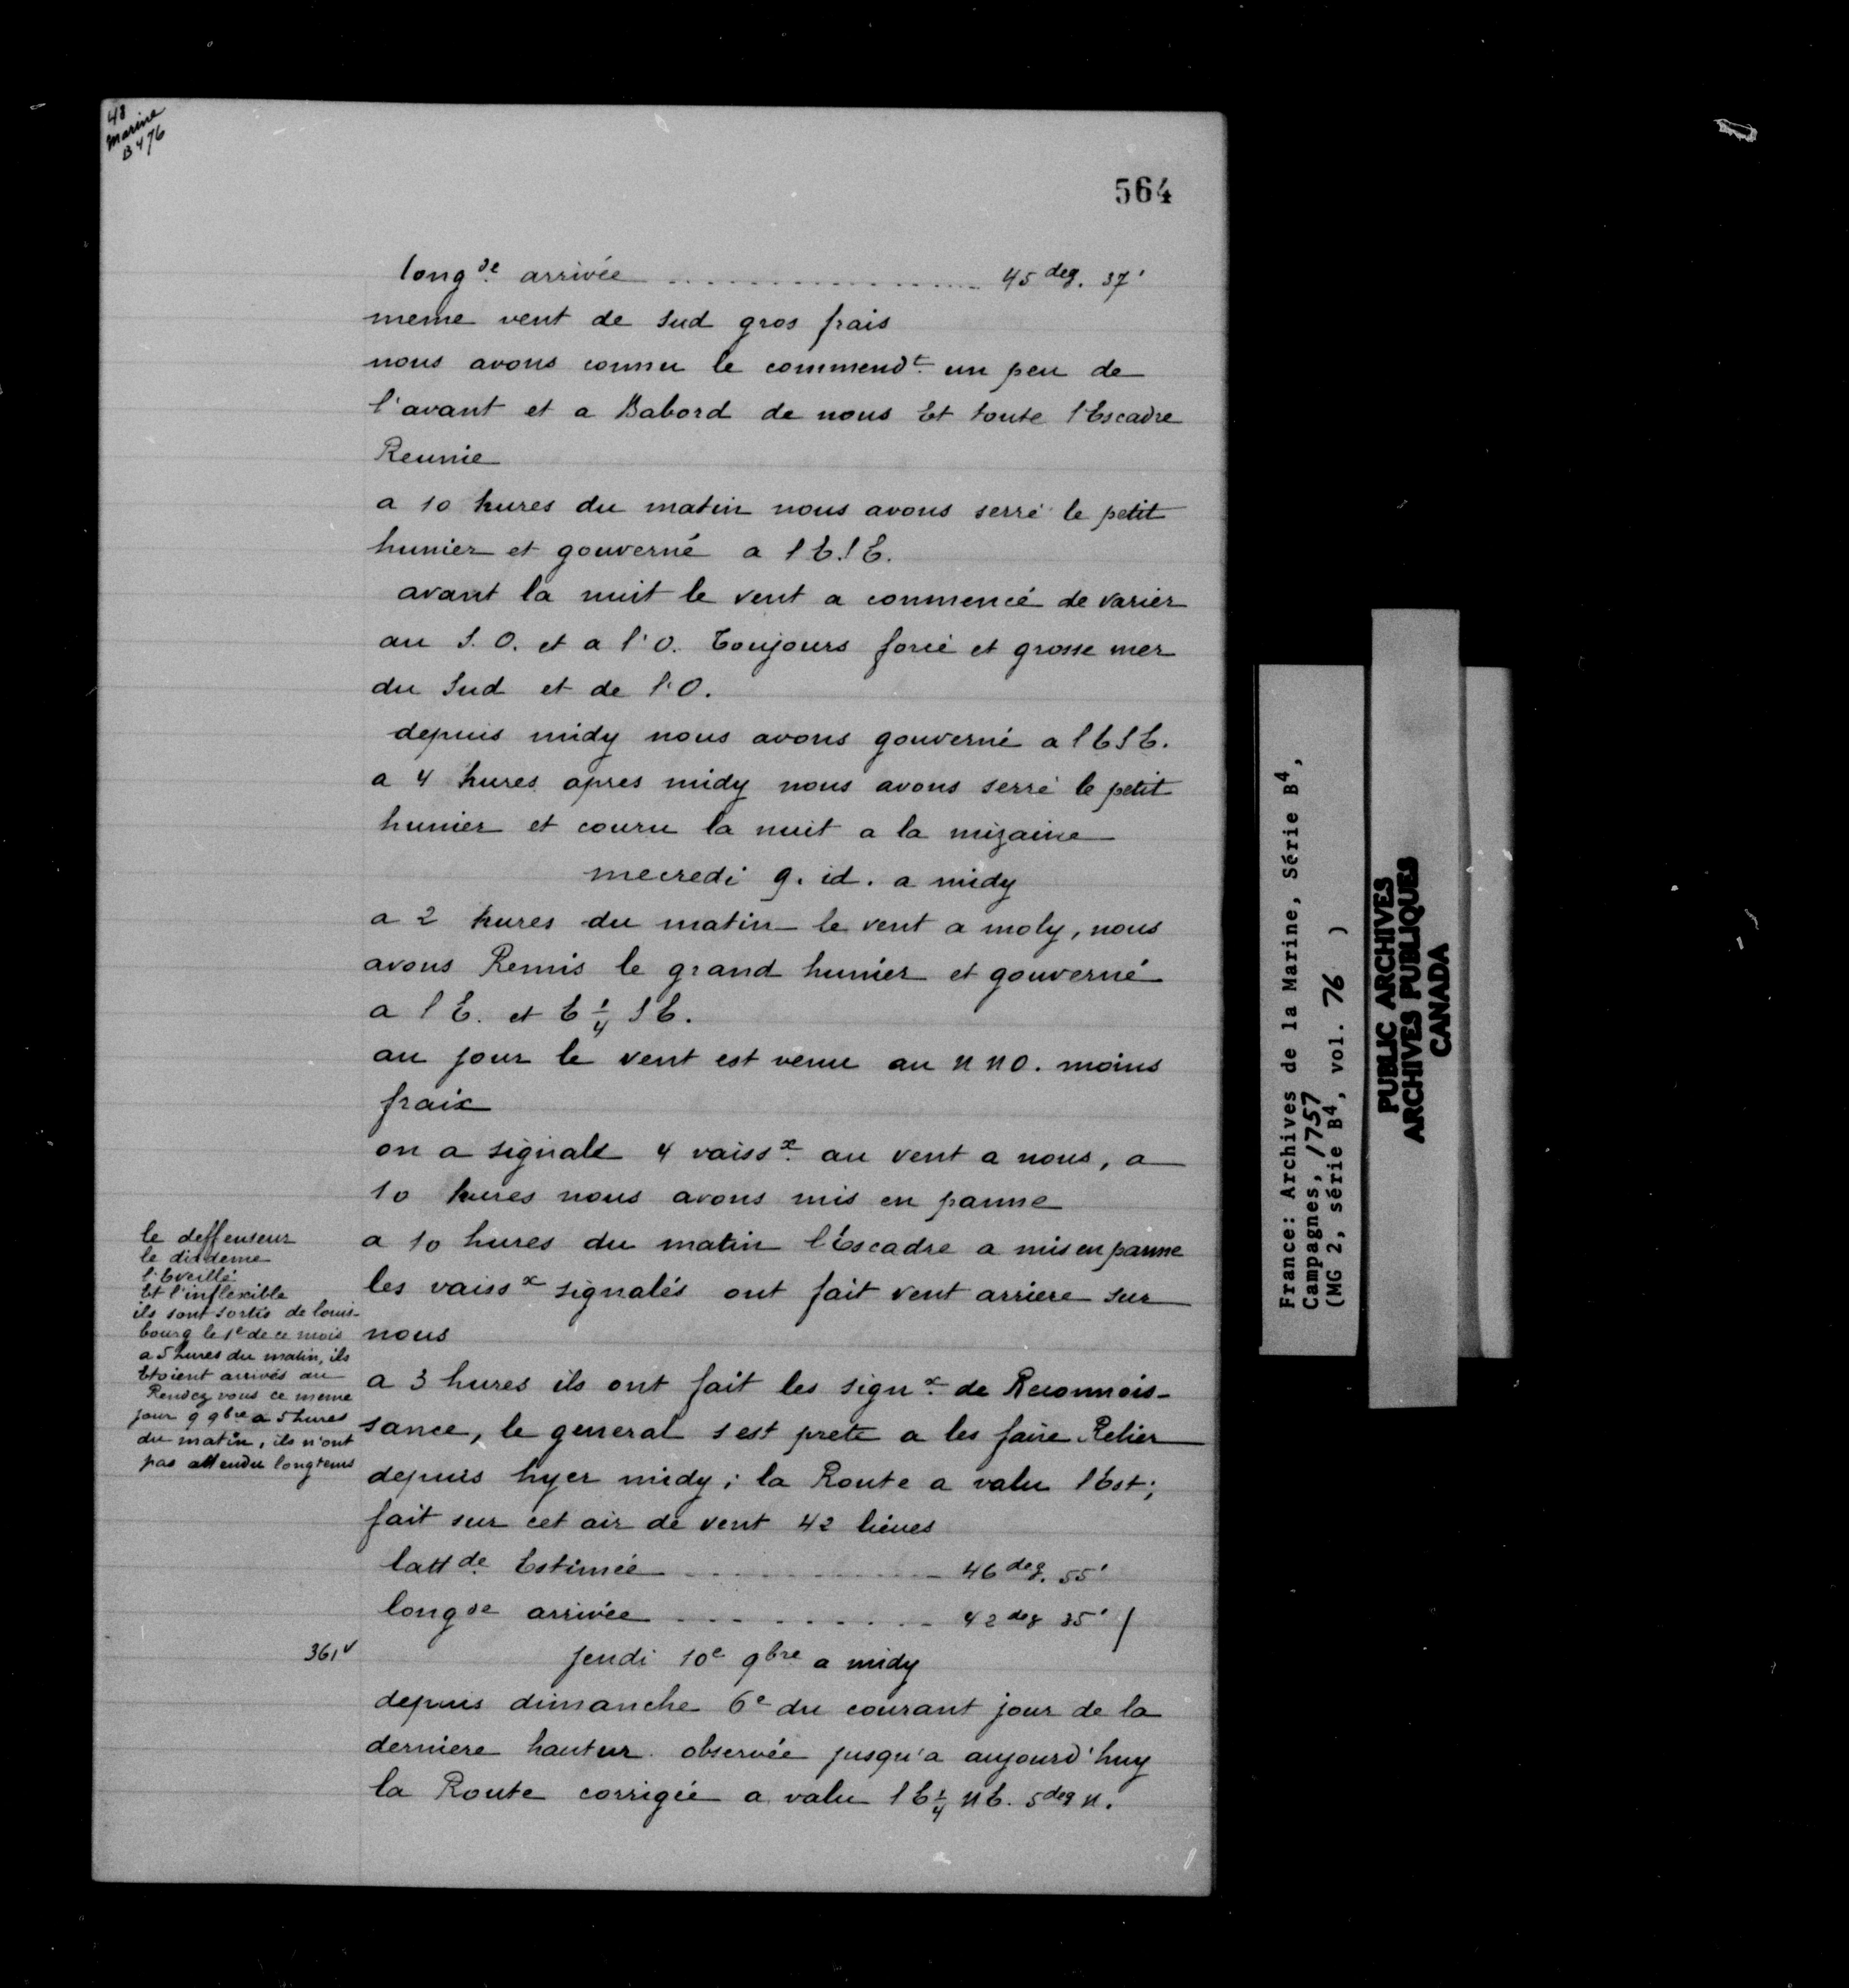 48
Marine
B476
564
longde. arrivée ................ 45 deg. 37'
meme vent de Sud gros frais
nous avons connu le commendt. un peu de
l'avant et a Babord de nous Et toute l'Escadre
Reunie
a 10 hures du matin nous avons serré le petit
hunier et gouverné a l E.S E.
avant la nuit le vent a commencé de varier
au S. O. et a l'O. Toujours forcé et grosse mer
du Sud et de l'O.
depuis midy nous avons gouverné a l E S E.
a 4 hures apres midy nous avons serré le petit
hunier et couru la nuit a la mizaine
mecredi 9. id. a midy
a 2 hures du matin le vent a moly, nous
avons Remis le grand hunier et gouverné
a l E. et E 1/4 S E.
au jour le vent est venu au n n O. moins
fraix
on a signalé 4 vaissx. au vent a nous, a
10 hures nous avons mis en panne
a 10 hures du matin l'Escadre a mis en panne
les vaissx signalés ont fait vent arriere sur
nous
a 3 hures ils ont fait les signx. de Reconnois-
sance, le general s est prete a les faire Relier
depuis hyer midy; la Route a valu l'Est;
fait sur cet air de vent 42 lieues
lattde. Estimée ............ 46 deg. 55'
longde arrivée .......... 42 deg 35' /
le deffenseur
le diademe
l'Eveillé
Et l'inflexible
ils sont sortis de louis-
bourg le 1e de ce mois
a 5 hures du matin, ils
Etoient arrivés au
Rendez vous ce meme
jour 9 9bre a 5 hures
du matin, ils n'ont
pas attendu longtems
361v
Jeudi 10e 9bre a midy
depuis dimanche 6e du courant jour de la
derniere hautur observée jusqu'a aujourd'huy
la Route corrigée a valu l E 1/4 n E. 5 deg n.
France: Archives de la Marine, Série B4,
Campagnes, 1757
(MG 2, série B4, vol. 76 )
PUBLIC ARCHIVES
ARCHIVES PUBLIQUES
CANADA